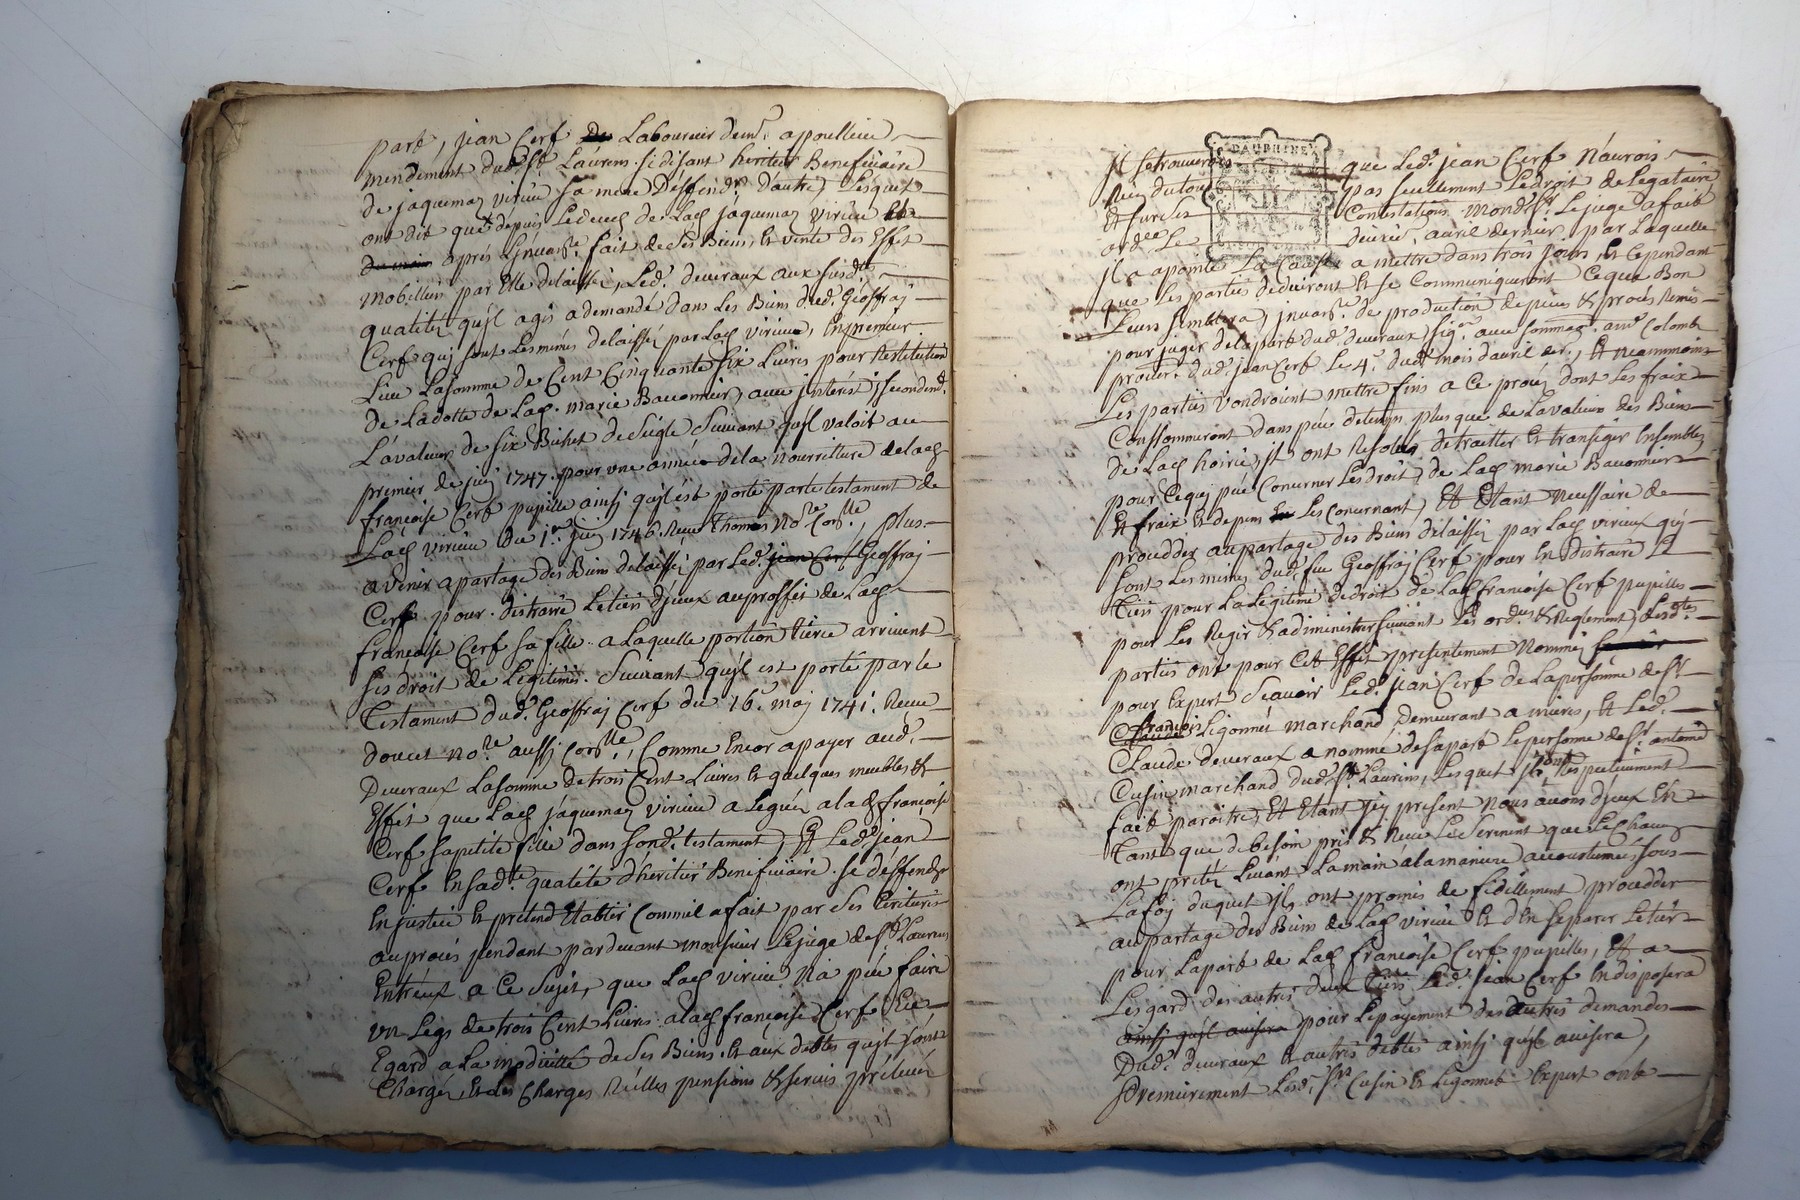 part, jean Cerf Laboureur demt. apouillieu
mendement dudt. St. Laurens. se disant heritier Beneficiaire
de jaquemaz virieu sa mere Déffendr. d'autre, Lesquels
ont dit que depuis Ledeceds de Lad. jaquemaz virieu
aprés fait de ses Biens, et vente des Effet
mobilliers par Elle delaissé, Led. deveraux aux susdtes.
qualités qu'jl agis a demandé dans Les Biens dud. Géoffraj
Cerf quj sont Lesmémes delaissés par Lad. virieu, En premier
Lieu Lasomme de Cent Cinquante six Livres pour Restitution
de Ladotte de Lad. marie Bauonnier, avec jnterést; secondemt.
Lavaleur de six Bichet de seigle suivant qu'jl valoit au
premier de juin 1747. pour une année dela nourriture delad.
françoise Cerf pupille ainsj qu'jl ést porté parle testament de
Lad. virieu du 1er. juin 1746. Receu Thomas Nore.
avenir apartage des Biens delaissés par Led. jean Cerf Geoffraj
Cerf pour distraire Letiers d'jceux auproffit de Lad.
françoise Cerf sa fille alaquelle portion tierce arrivent
ses droit de Legitime. suivant qu'jl est porté parle
Testament dud. Geoffraj Cerf du 16. maj 1741. Receu
doucet nore. aussj, Comme Encor apayer aud.
Deveraux Lasomme detrois Cent Livres et quelques meubles &
Effet que Lad. jaquemaz virieu a Legués a lad. françoise
Cerf sapetite fille dans sond. testament, Et Led. jean
Cerf En sadte. qualité d'héritier Beneficiaire se déffend
En justice et prétend Etablir Comme jl a fait par ses Ecritures
auprocés pendant pardevant monsieur Lejuge de St. Laurens
Entréux a Ce sujet, que Lad. virieu N'a peu faire
un Legs detrois Cent Livres alad. françoise Cerf Eu
Egard a La modicité de ses Biens. et aux debtes qu'jl sont
Chargés, et des Charges Réélles pensions & servis prélevés
jl se trouveroit que Led. jean Cerf N'auroit
Rien du tout pas seullement Ledroit de Legataire
Et sur Les Contestations Mondt. Sr. Lejuge a fait
ordce. Le avril dernier, par Laquelle
jl a apointé La Cause a mettre dans trois jours, et Cependant
que Les parties deduiront et se Communiqueront Ceque Bon
Leurs semblera, de production depieces & procés Remis
pour juger delapart dud. deveraux, avec sommaon. a me. Colomb
procur. dud. jean Cerf Le 4. dud. mois d'avril der., Et neammoins
Les parties voudroient mettre fins a Ce procés dont Les fraix
Consommeront dans peu detemps plus que de Lavaleur des Biens
de Lad. hoirie, jl ont Résolus detraitter et transiger Ensembles
pour Cequj peu Concerner Les droit, de Lad. marie Bauonnier
Et fraix et depens Les Concernant, Et Etant necessaire de
proceder aupartage des Biens delaissés par Lad. virieu quj
sont Les mémes dud. feu Geoffraj Cerf pour En distraire Le
Tiers pour La Légitime de droit de Lad. françoise Cerf pupille
pour Les Regir & administrer suivant Les ordces. & Reglement, Lesdtes.
parties ont pour Cet Effet presentement Nommés
pour Expert Scavoir Led. jean Cerf de Lapersonne de Sr.
françois Ligonnet marchand Demeurant a, et Led.
Claude deveraux a nommé desapart Lepersonne de Sr. antoine
Cusin marchand dud. St. Laurens, Lesquels jls ont respectivement
fait paroitre, Et Etant jcy present Nous avons d'jceux En
tant que debesoin pris & Receu Le serement que Le Chacun
ont pretés Levant Lamain alamaniere accoustumée, sous
Lafoj duquel jls ont promis de fidellement proceder
aupartage des Biens de Lad. virieu et d'En separer Letiers
pour Lapart de Lad. françoise Cerf pupilles, Et a
Lésgard des autres deux tiers Led. jean Cerf En disposera
ainsj qu'jl avisera pour Lepayement des autres demandes
Dud. deveraux et autres debtes ainsj qu'jl avisera,
Premierement Lesd. Srs. Cusin et Ligonnet Expert ont
DAUPHINE